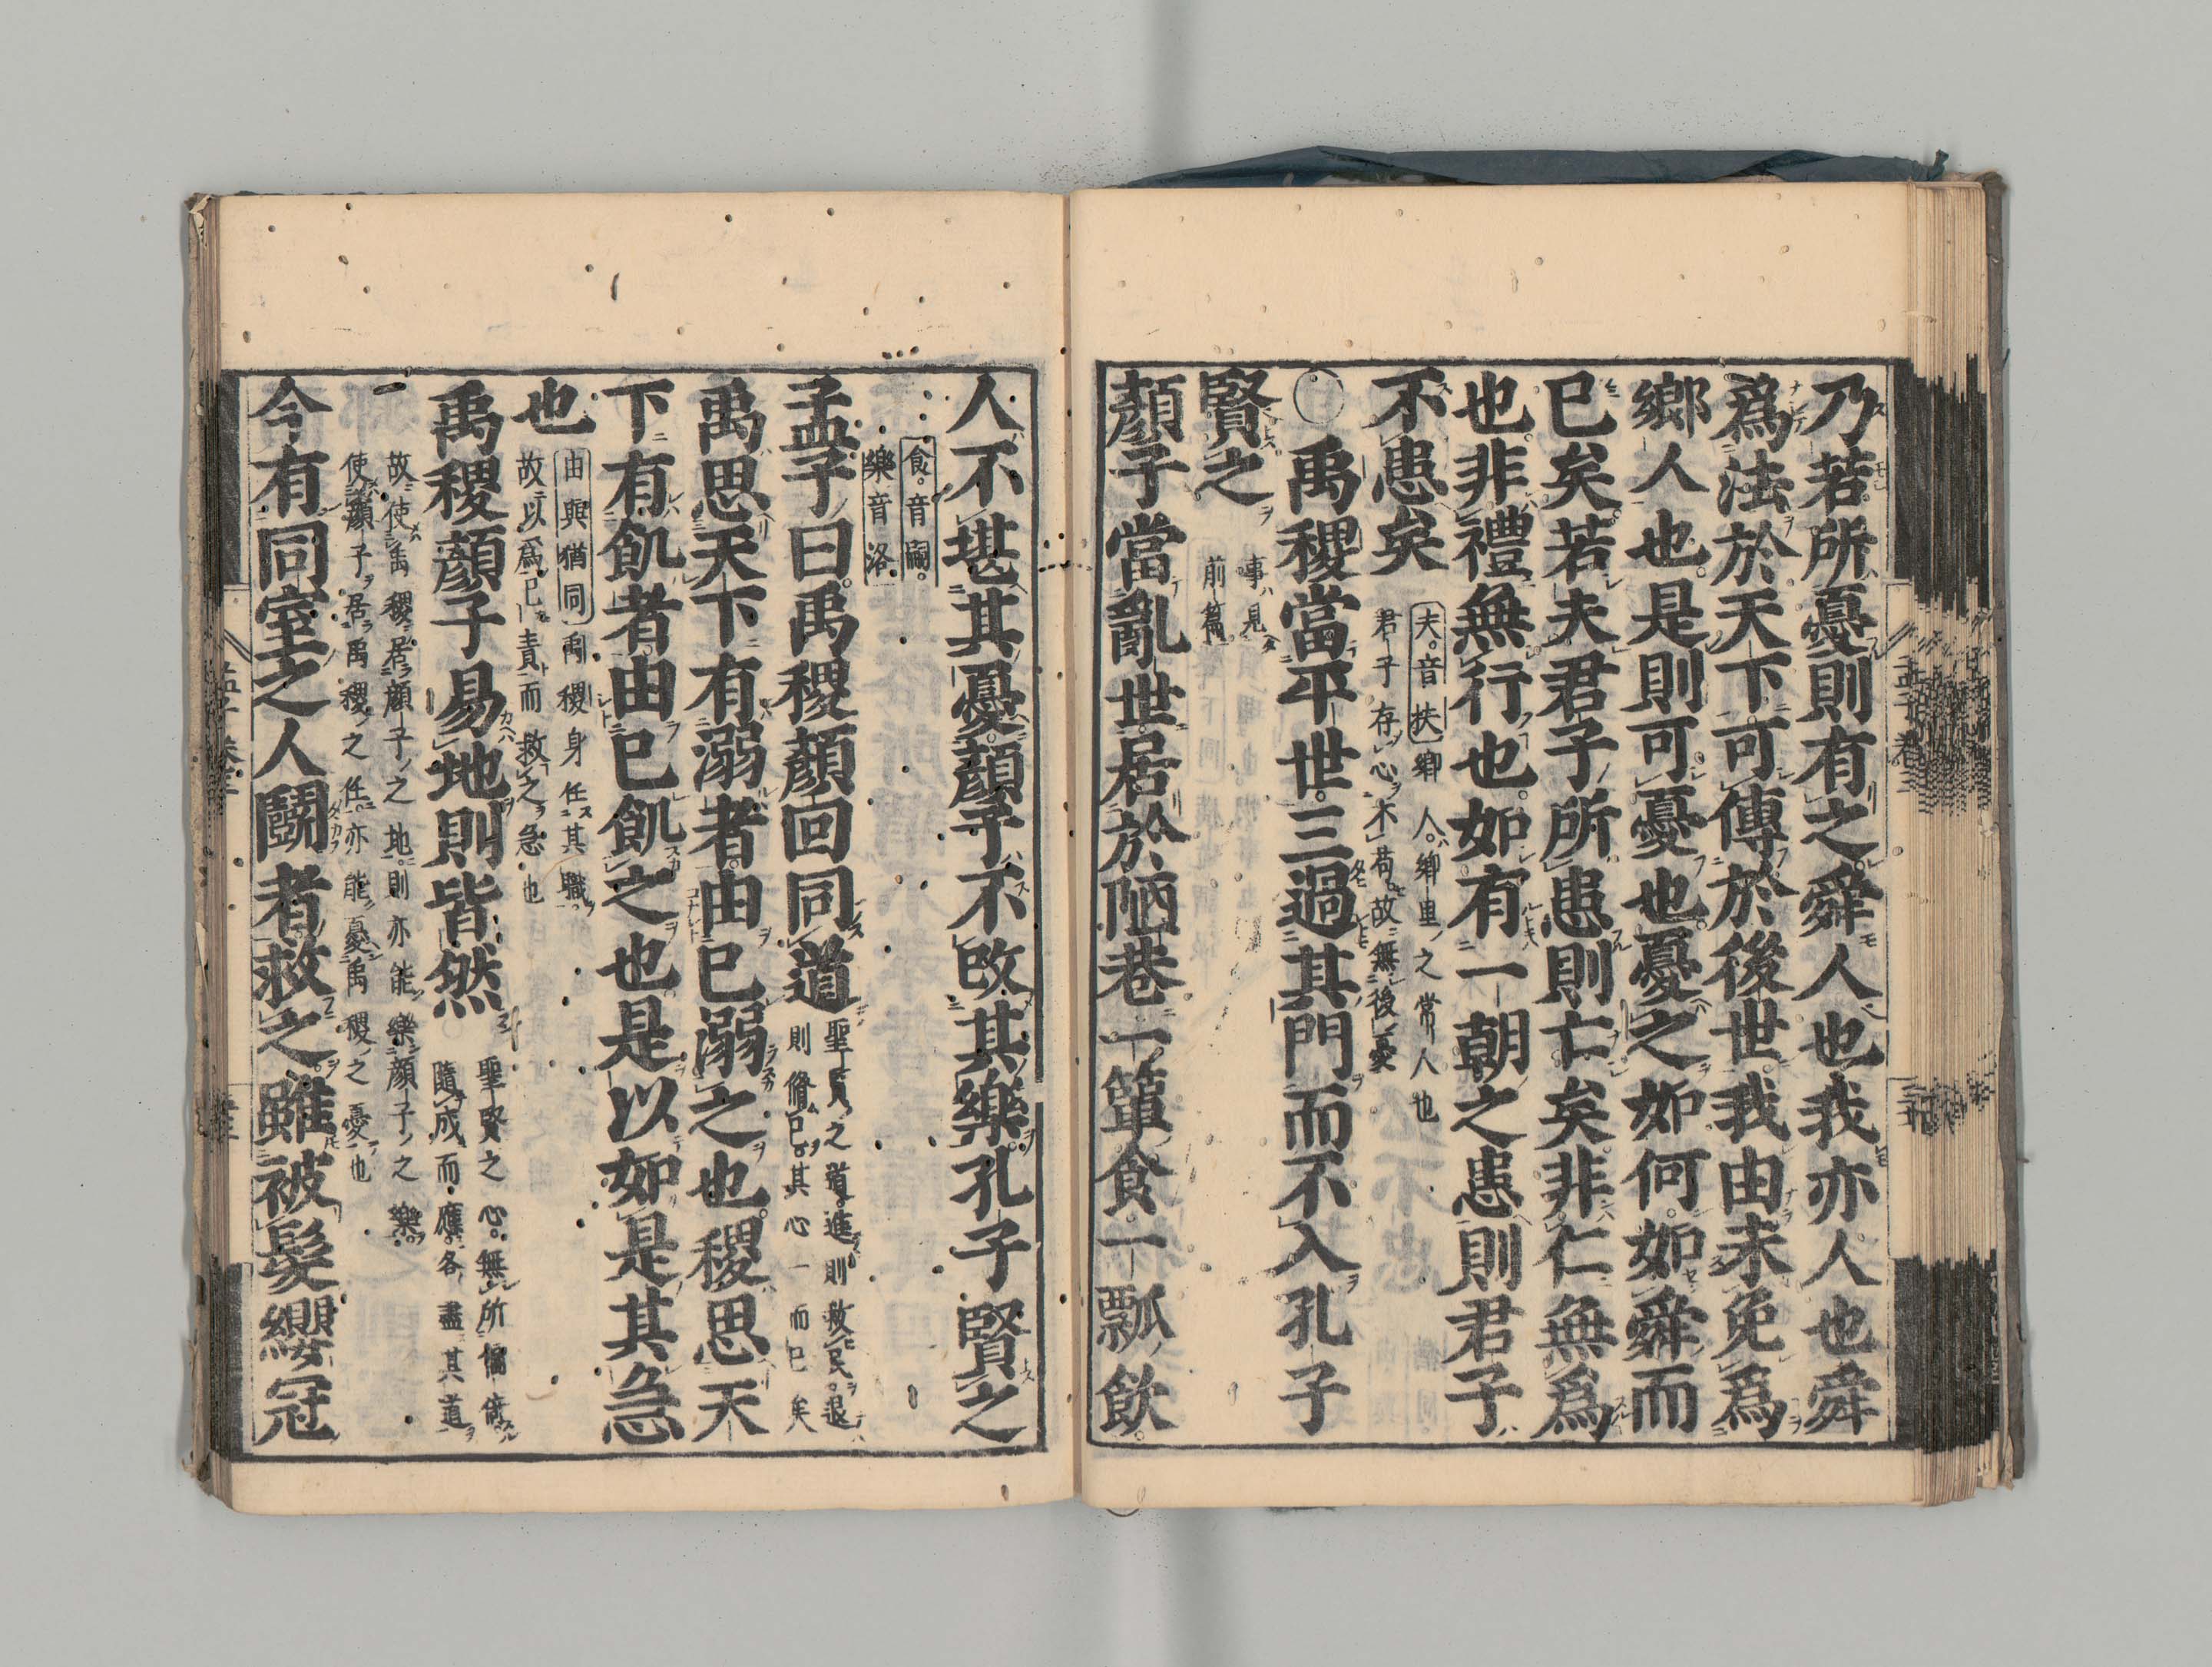 乃若所憂則有之舜人也我亦人也舜
爲法於天下可傳於後世我由未免爲
鄉人也是則可憂也憂之如何如舜而
已矣若夫君子所患則亡矣非仁無爲
也非禮無行也如有一朝之患則君子
不患矣
夫音扶鄉人鄉里之常人也
君子存心不苟故無後憂
○禹稷當平世三過其門而不入孔子
賢之
事見
前篇
顏子當亂世居於陋巷一簞食一瓢飲
人不堪其憂顏子不改其樂孔子賢之
食音嗣
樂音洛
孟子曰禹稷顏回同道
聖賢之道進則救民退
則脩己其心一而已矣
禹思天下有溺者由己溺之也稷思天
下有飢者由己飢之也是以如是其急
也
由與猶同禹稷身任其職
故以爲己責而救之急也
禹稷顏子易地則皆然
聖賢之心無所偏倚
隨感而應各盡其道
故使禹稷居顏子之地則亦能樂顏子之樂
使顏子居禹稷之任亦能憂禹稷之憂也
今有同室之人鬭者救之雖被髮纓冠